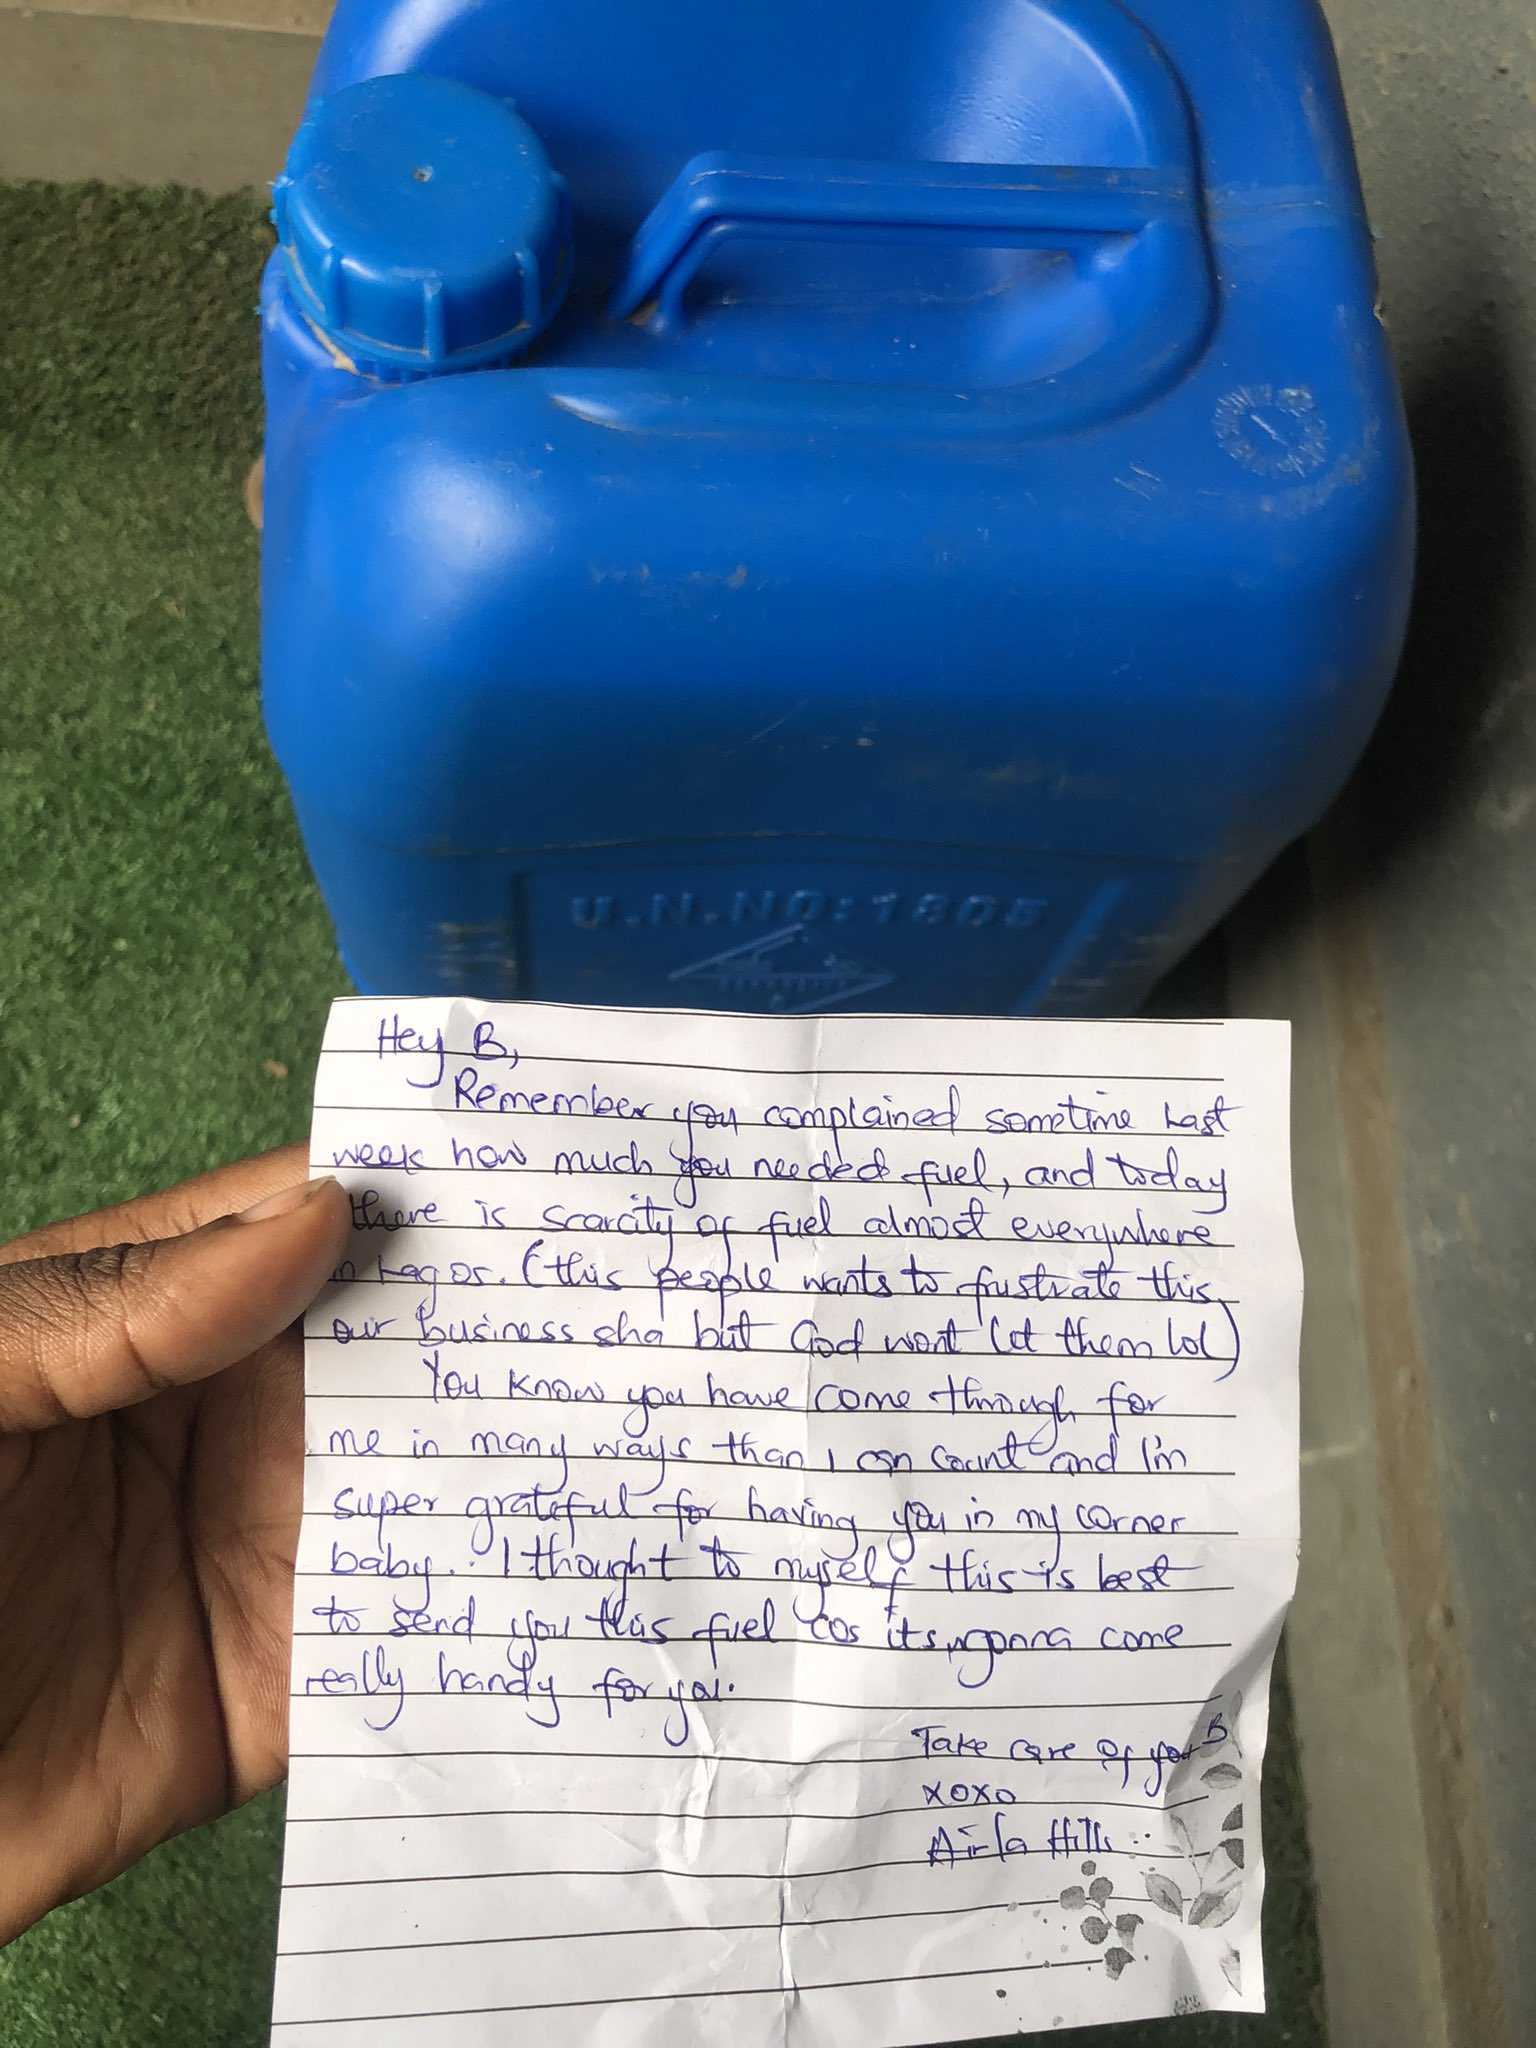 U.N.NO:1805
Hey B,
Remember you complained sometime last
week how much you needed fuel, and today
there is scarcity of fuel almost everywhere
in Lagos. (this people wants to frustrate this
our business sha but God wont let them lol)
You know you have come through for
me in many ways than I can count and I'm
super grateful for having you in my corner
baby.. I thought to myself this is best
to send you this fuel cos its gonna come
really handy for you.
Take care of you B
xoxo